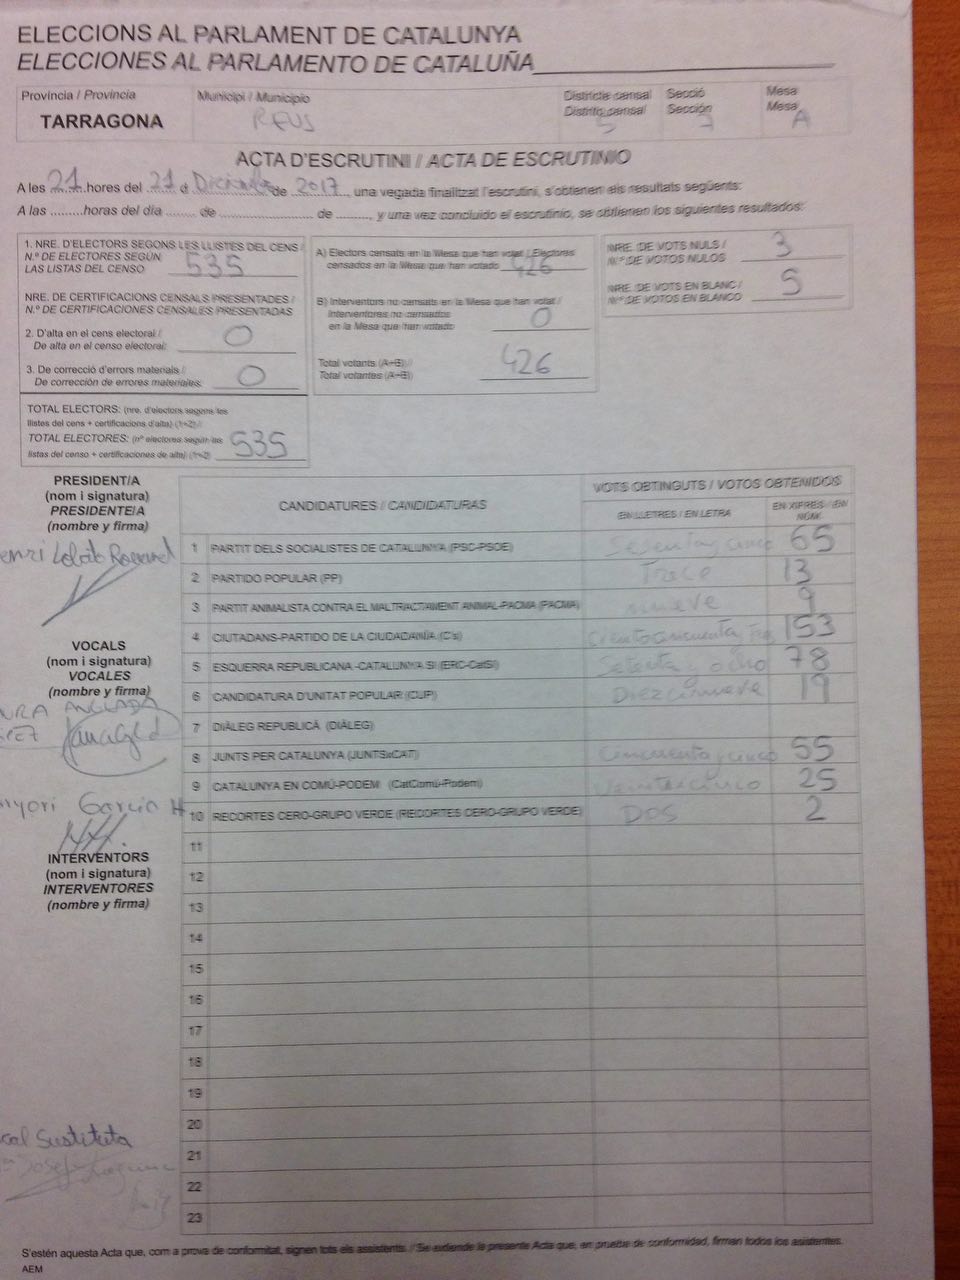 ELECCIONS AL PARLAMENT DE CATALUNYA
ELECCIONES AL PARLAMENTO DE CATALUÑA
Província / Provincia
TARRAGONA
Municipi / Municipio
REUS
Districte censal
Distrito censal
5
Secció
Sección
7
Mesa
Mesa
A
ACTA D'ESCRUTINI / ACTA DE ESCRUTINIO
A les 21 hores del 21 d Diciembre de 2017, una vegada finalitzat l'escrutini, s'obtenen els resultats següents:
A las .........horas del día ....... de ....................... de ........, y una vez concluido el escrutinio, se obtienen los siguientes resultados:
1. NRE. D'ELECTORS SEGONS LES LLISTES DEL CENS /
N.º DE ELECTORES SEGÚN
LAS LISTAS DEL CENSO 535
NRE. DE CERTIFICACIONS CENSALS PRESENTADES /
N.º DE CERTIFICACIONES CENSALES PRESENTADAS
2. D'alta en el cens electoral /
De alta en el censo electoral: 0
3. De correcció d'errors materials /
De corrección de errores materiales: 0
TOTAL ELECTORS: (nre. d'electors segons les
llistes del cens + certificacions d'alta) (1+2) /
TOTAL ELECTORES: (nº electores según las
listas del censo + certificaciones de alta) (1+2) 535
A) Electors censats en la Mesa que han votat / Electores
censados en la Mesa que han votado 426
B) Interventors no censats en la Mesa que han votat /
Interventores no censados
en la Mesa que han votado 0
Total votants (A+B) /
Total votantes (A+B) 426
NRE. DE VOTS NULS /
N.º DE VOTOS NULOS 3
NRE. DE VOTS EN BLANC /
N.º DE VOTOS EN BLANCO 5
PRESIDENT/A
(nom i signatura)
PRESIDENTE/A
(nombre y firma)
VOCALS
(nom i signatura)
VOCALES
(nombre y firma)
García H
INTERVENTORS
(nom i signatura)
INTERVENTORES
(nombre y firma)
Sustituta
CANDIDATURES / CANDIDATURAS
VOTS OBTINGUTS / VOTOS OBTENIDOS
EN LLETRES / EN LETRA
EN XIFRES / EN
NÚM.
1 PARTIT DELS SOCIALISTES DE CATALUNYA (PSC-PSOE) Sesenta y cinco 65
2 PARTIDO POPULAR (PP) Trece 13
3 PARTIT ANIMALISTA CONTRA EL MALTRACTAMENT ANIMAL-PACMA (PACMA) nueve 9
4 CIUTADANS-PARTIDO DE LA CIUDADANÍA (C's) Ciento cincuenta y tres 153
5 ESQUERRA REPUBLICANA -CATALUNYA SÍ (ERC-CatSí) Setenta y ocho 78
6 CANDIDATURA D'UNITAT POPULAR (CUP) Diezcinueve 19
7 DIÀLEG REPUBLICÀ (DIÀLEG)
8 JUNTS PER CATALUNYA (JUNTSxCAT) Cincuenta y cinco 55
9 CATALUNYA EN COMÚ-PODEM (CatComú-Podem) Veinticinco 25
10 RECORTES CERO-GRUPO VERDE (RECORTES CERO-GRUPO VERDE) DOS 2
11
12
13
14
15
16
17
18
19
20
21
22
23
S'estén aquesta Acta que, com a prova de conformitat, signen tots els assistents. / Se extiende la presente Acta que, en prueba de conformidad, firman todos los asistentes.
AEM